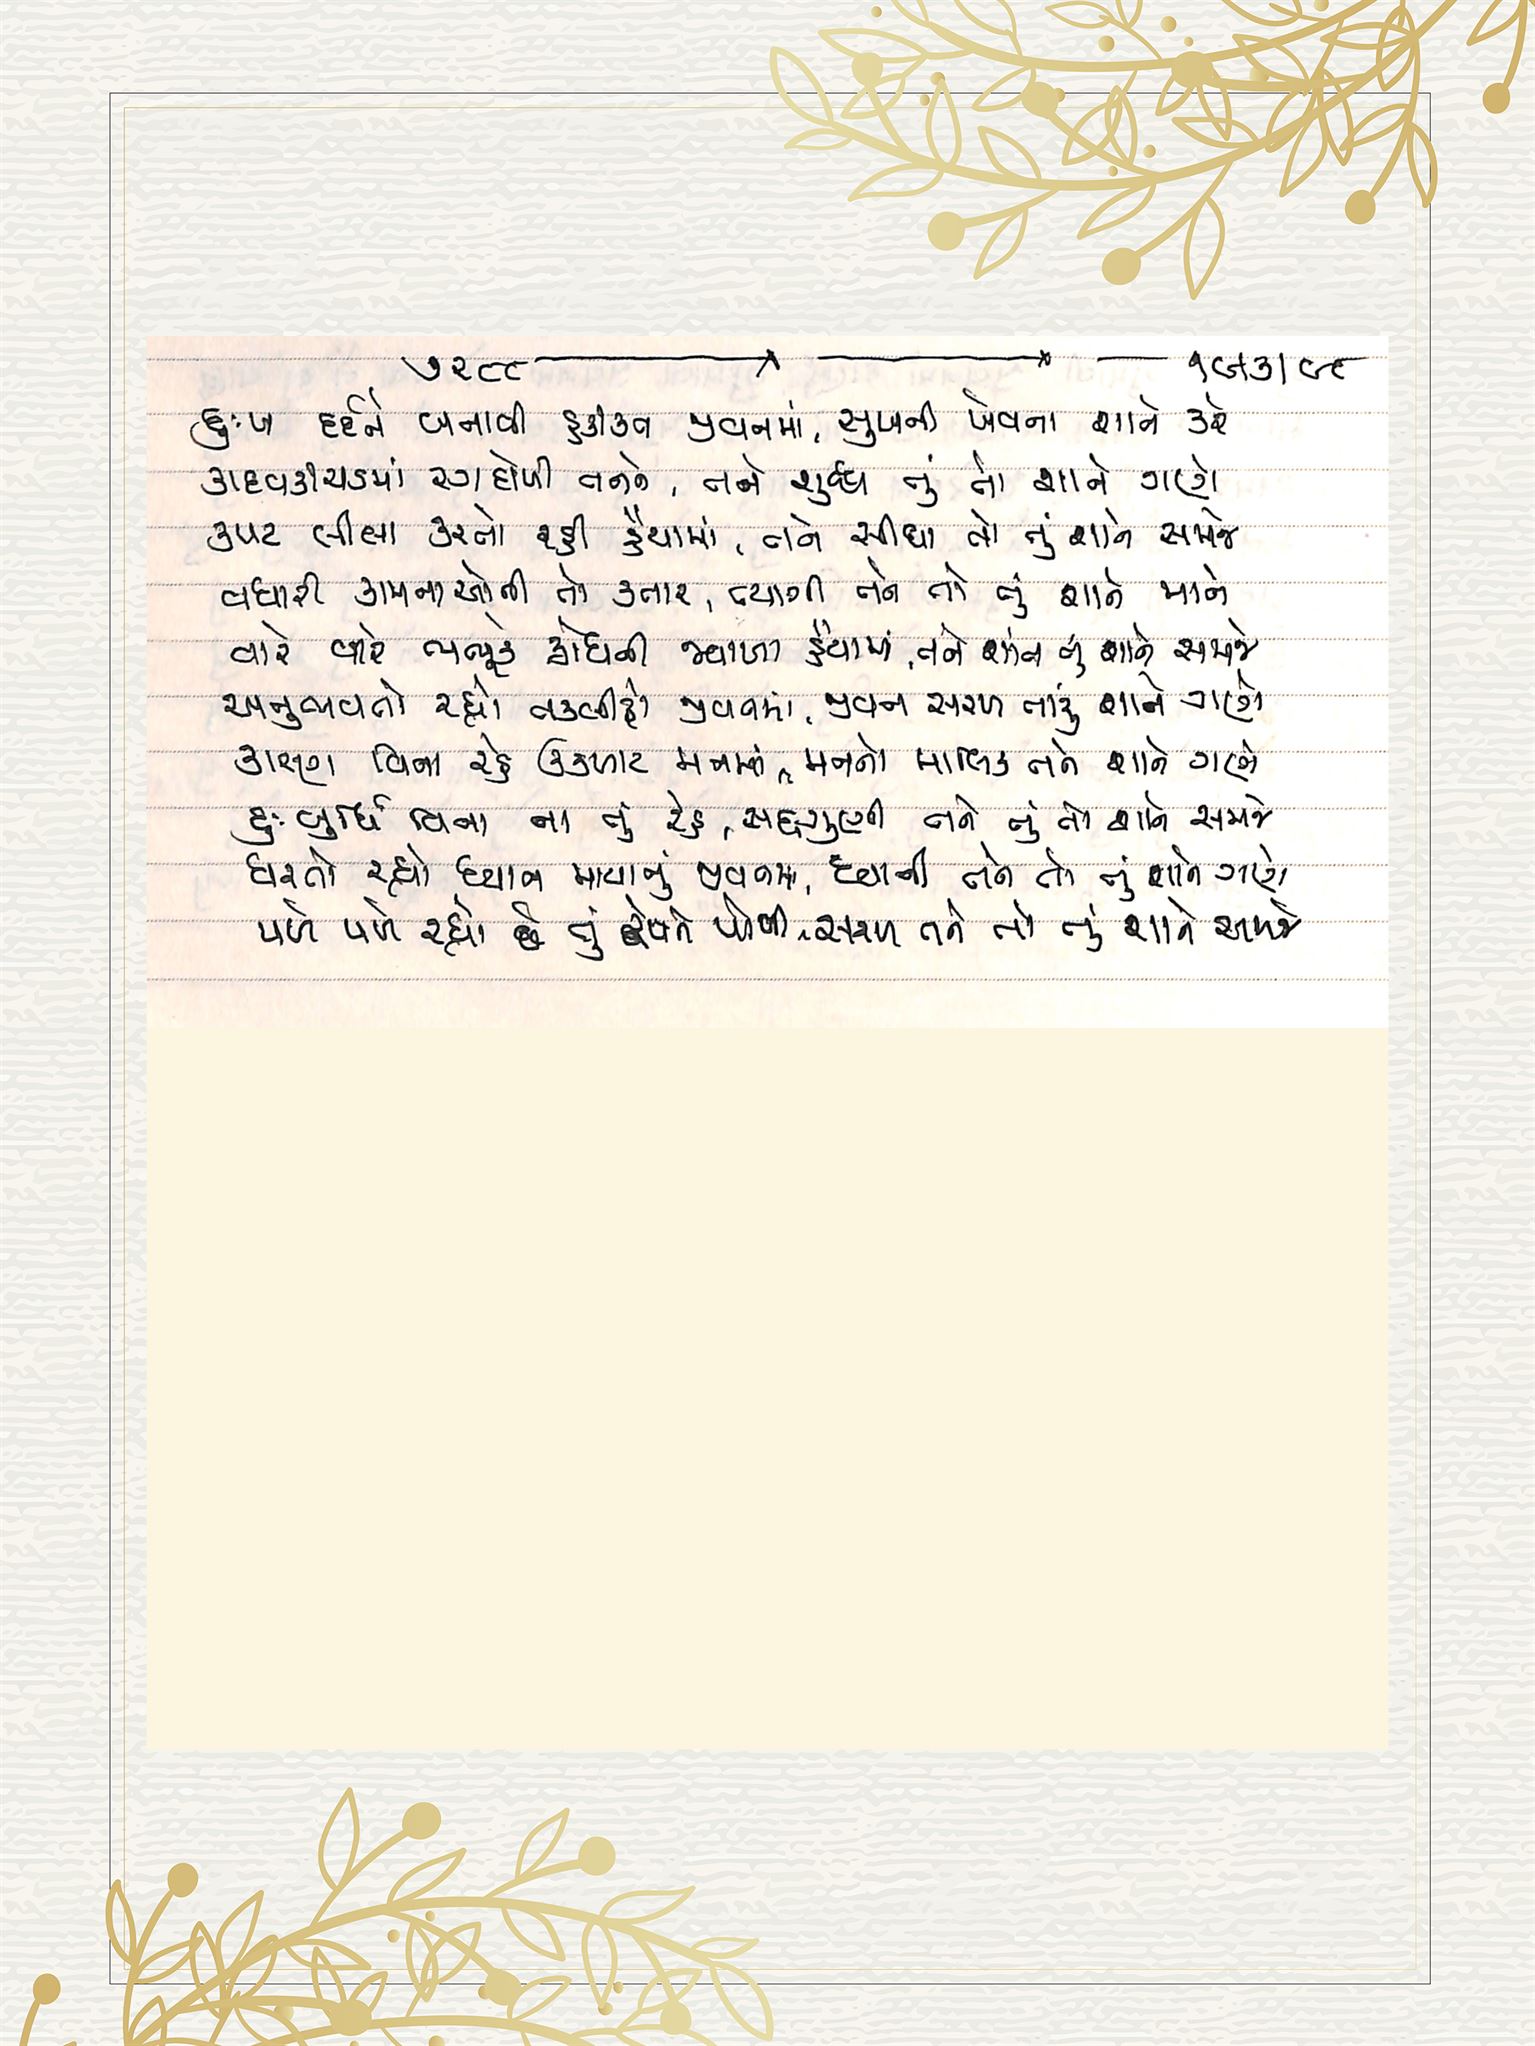 ૭૨૮૮ ——— X ——— X —
દુઃખ દર્દને બનાવી હકીકત જીવનમાં, સુખની ખેવના શાને કરે
કાદવકીચડમાં રગદોળી તનને, તને શુદ્ધ તું તો શાને ગણે
કપટ લીલા કરતો રહી હૈયામાં, તને સીધા તો તું શાને સમજે
વધારી કામનાઓની તો કતાર, ત્યાગી તને તો તું શાને માને
વારે વારે ભભૂકે ક્રોધની જ્વાળા હૈયામાં, તને શાંત તું શાને સમજે
અનુભવતો રહ્યો તકલીફો જીવનમાં, જીવન સરળ તારું શાને ગણે
કારણ વિના રહે ઉકળાટ મનમાં, મનનો માલિક તને શાને ગણે
દુઃબુદ્ધિ વિના ના તું રહે, સદ્ગુણી તને તું તો શાને સમજે
ધરતો રહ્યો ધ્યાન માયાનું જીવનમાં, ધ્યાની તને તો તું શાને ગણે
પળે પળે રહ્યો છે તું, સરળ તને તો તું શાને સમજે